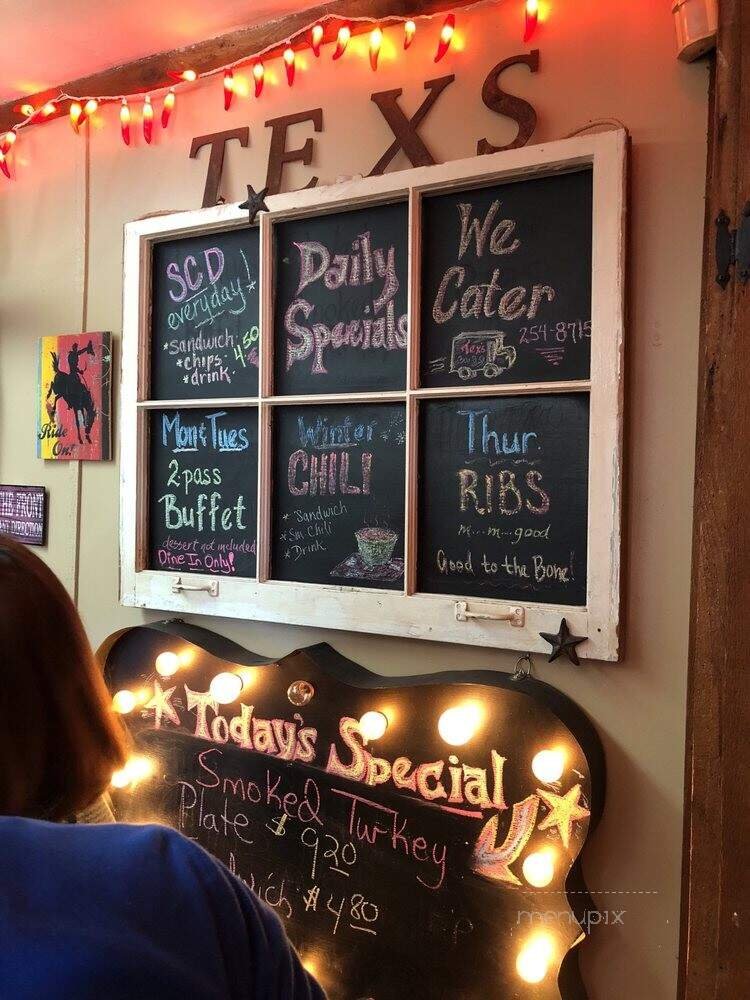 TEXS
SCD
everyday!
*sandwich
*chips
*drink
4.50
Daily
Specials
We
Cater
Tex's
254-8715
Mon & Tues
2 pass
Buffet
dessert not included
Dine In Only!
Winter
CHILI
*Sandwich
*Sm Chili
*Drink
Thur.
RIBS
m...m...good
Good to the Bone!
Ride
On!
Today's Special
Smoked Turkey
Plate $9.20
$4.80
menupix